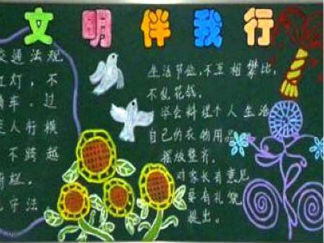 文明伴我行
交通法规
红灯，不
车。过
人行横
不跨越
守法
生活节俭，不互相攀比，
不乱花钱。
学会料理个人生活
自己的衣物用品
摆放整齐。
家长有意见
要有礼貌
提出。